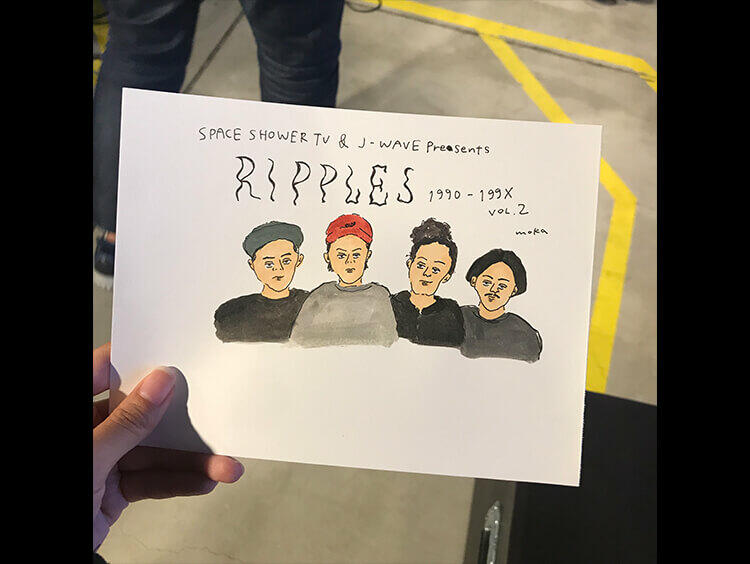 SPACE SHOWER TV & J-WAVE Preasents
RIPPLES 1990-199X
VOL.2
moka